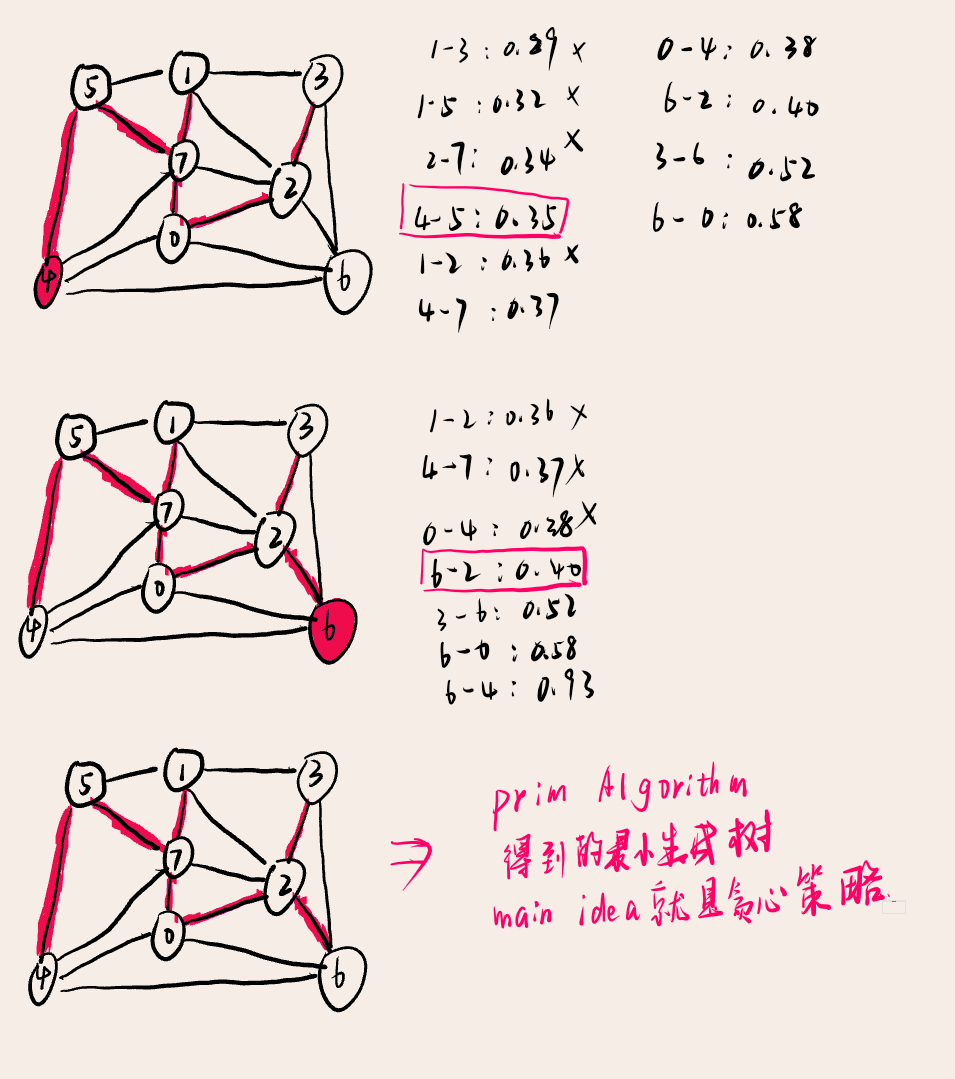 5
1
3
7
2
0
4
6
1-3 : 0.29 ×
1-5 : 0.32 ×
2-7 : 0.34 ×
4-5 : 0.35
1-2 : 0.36 ×
4-7 : 0.37
0-4 : 0.38
6-2 : 0.40
3-6 : 0.52
6-0 : 0.58
5
1
3
7
2
0
4
6
1-2 : 0.36 ×
4-7 : 0.37 ×
0-4 : 0.38 ×
6-2 : 0.40
3-6 : 0.52
6-0 : 0.58
6-4 : 0.93
5
1
3
7
2
0
4
6
⇒
prim Algorithm
得到的最小生成树
main idea 就是贪心策略.